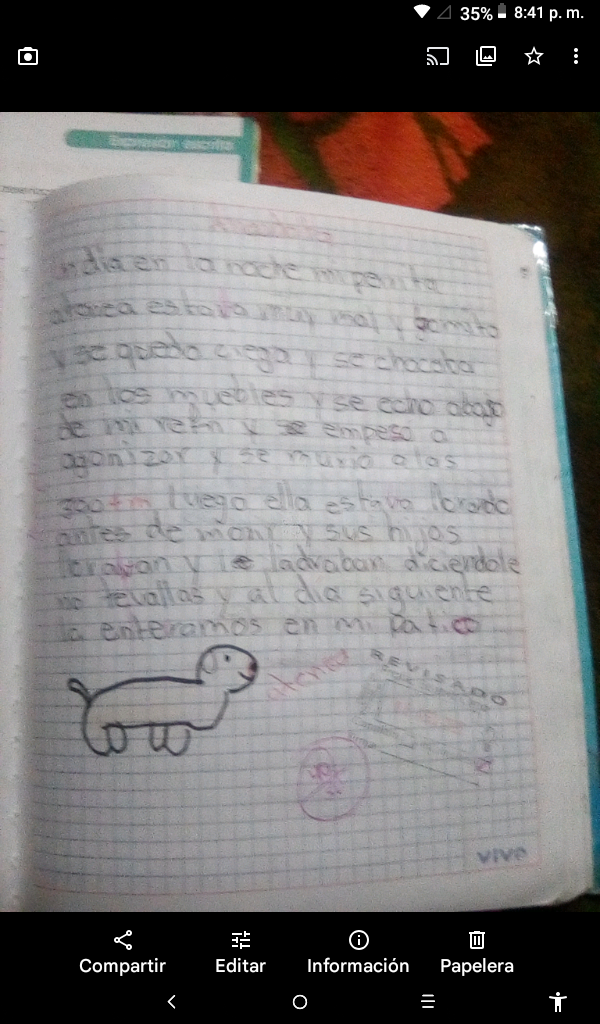 35% 8:41 p. m.
Expresión escrita
Anecdota
un dia en la noche mi perrita
atenea estava muy mal y bomito
y se quedo ciega y se chocaba
en los muebles y se echo abajo
de mi refri y se empeso a
agonizar y se murio alas
3:00 + m luego ella estava llorando
antes de morir y sus hijos
lloraban y le ladraban diciendole
no te vallas y al dia siguiente
la enteramos en mi patio
atenea
REVISADO
vivo
Compartir Editar Información Papelera